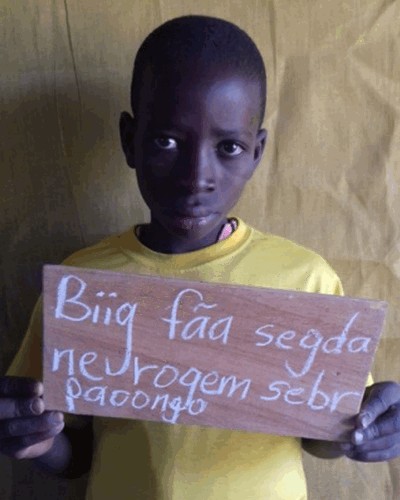 Biig fãa segda
ne vrogem sebr
paoongo